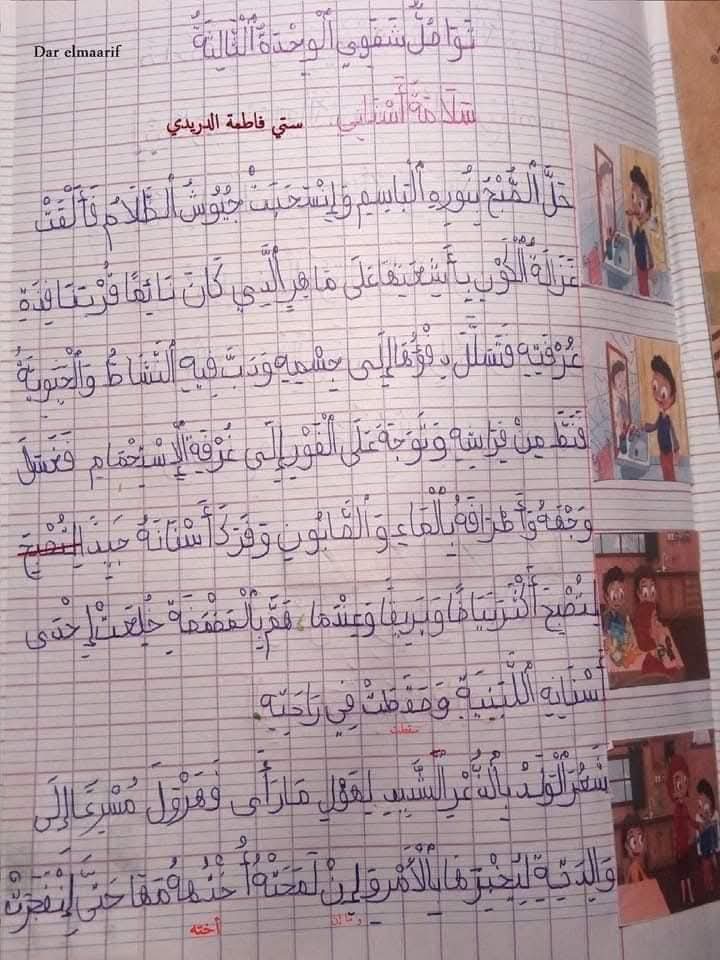 Dar elmaarif
تَوَاصُلٌ شَفَوِي الْوِحْدَةُ الثَّالِثَةُ
سَلَامَةُ أَسْنَانِي
ستي فاطمة الدريدي
حَلَّ الصُّبْحُ بِنُورِهِ الْبَاسِمِ وَإِنْسَحَبَتْ جُيُوشُ الظَّلَامُ فَأَلْقَتْ
غَزَالَةُ الْكَوْنِ بِأَشِعَّتِهَا عَلَى مَاهِرٍ الَّذِي كَانَ نَائِمًا قُرْبَ نَافِذَةِ
غُرْفَتِهِ فَتَسَلَّلَ دِفْؤُهَا إِلَى جِسْمِهِ وَدَبَّ فِيهِ النَّشَاطُ وَالْحَيَوِيَّةُ
فَنَطَّ مِنْ فِرَاشِهِ وَتَوَجَّهَ عَلَى الْفَوْرِ إِلَى غُرْفَةِ الْإِسْتِحْمَامِ فَغَسَلَ
وَجْهَهُ وَأَطْرَافَهُ بِالْمَاءِ وَالصَّابُونِ وَفَرَكَ أَسْنَانَهُ جَيِّدًا لِتُصْبِحَ
لِتُصْبِحَ أَكْثَرَ بَيَاضًا وَبَرِيقًا وَعِنْدَمَا هَمَّ بِالْمَضْمَضَةِ خُلِعَتْ إِحْدَى
أَسْنَانِهِ اللَّبَنِيَّةِ وَسَقَطَتْ فِي رَاحَتِهِ.
سقطت
شَعُرَ الْوَلَدُ بِالذُّعْرِ الشَّدِيدِ لِهَوْلِ مَا رَأَى فَهَرْوَلَ مُسْرِعًا إِلَى
وَالِدَتِهِ لِيُخْبِرَهَا بِالْأَمْرِ وَإِنْ لَمَحَتْهُ أُخْتُهُ مَهَا حَتَّى إِنْفَجَرَتْ
أخته